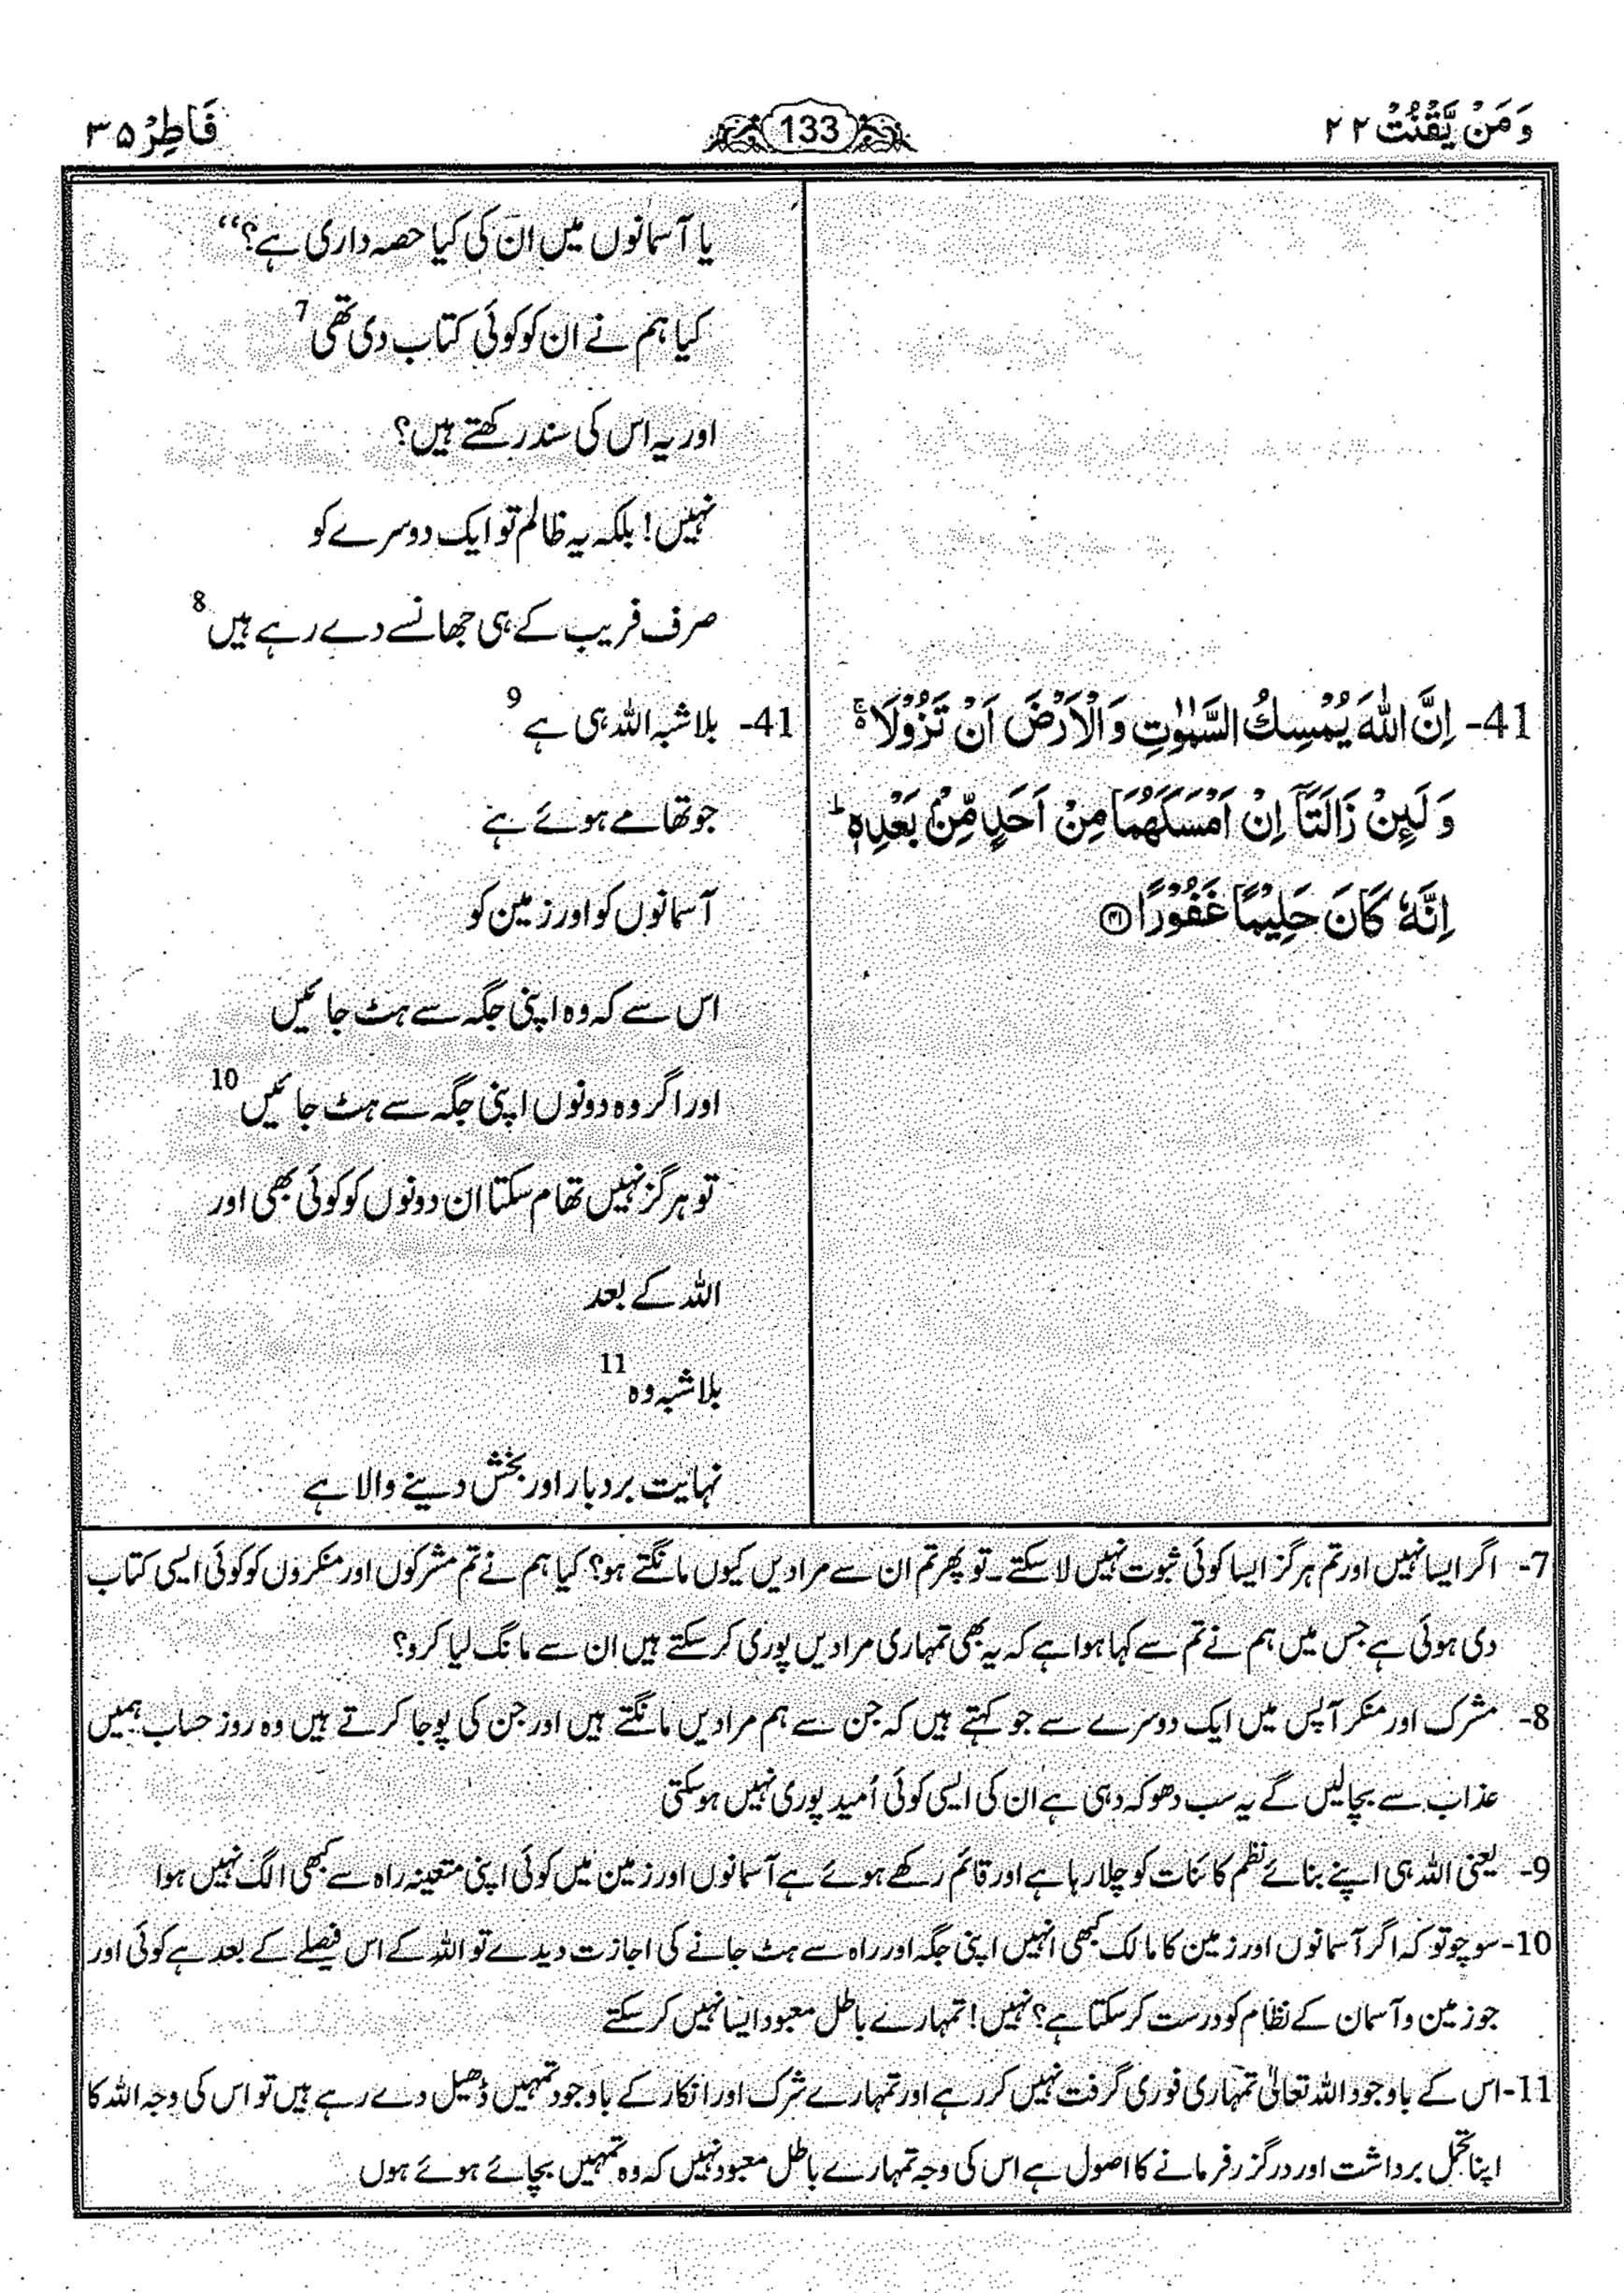 وَمَنْ يَّقْنُتْ ٢٢
133
فَاطِرْ ٣٥
یا آسمانوں میں ان کی کیا حصہ داری ہے؟‘‘
کیا ہم نے ان کو کوئی کتاب دی تھی 7
اور یہ اس کی سند رکھتے ہیں؟
نہیں! بلکہ یہ ظالم تو ایک دوسرے کو
صرف فریب کے ہی جھانسے دے رہے ہیں 8
41- اِنَّ اللّٰهَ يُمْسِكُ السَّمٰوٰتِ وَالْاَرْضَ اَنْ تَزُوْلَا ۚ
وَلَىِٕنْ زَالَتَاۤ اِنْ اَمْسَكَهُمَا مِنْ اَحَدٍ مِّنْۢ بَعْدِهٖ ؕ
اِنَّهٗ كَانَ حَلِيْمًا غَفُوْرًا ﴿٤١﴾
41- بلاشبہ اللہ ہی ہے 9
جو تھامے ہوئے ہے
آسمانوں کو اور زمین کو
اس سے کہ وہ اپنی جگہ سے ہٹ جائیں
اور اگر وہ دونوں اپنی جگہ سے ہٹ جائیں 10
تو ہرگز نہیں تھام سکتا ان دونوں کو کوئی بھی اور
اللہ کے بعد
بلاشبہ وہ 11
نہایت بردبار اور بخش دینے والا ہے
7- اگر ایسا نہیں اور تم ہرگز ایسا کوئی ثبوت نہیں لا سکتے۔ تو پھر تم ان سے مرادیں کیوں مانگتے ہو؟ کیا ہم نے تم مشرکوں اور منکروں کو کوئی ایسی کتاب
دی ہوئی ہے جس میں ہم نے تم سے کہا ہوا ہے کہ یہ بھی تمہاری مرادیں پوری کر سکتے ہیں ان سے مانگ لیا کرو؟
8- مشرک اور منکر آپس میں ایک دوسرے سے جو کہتے ہیں کہ جن سے ہم مرادیں مانگتے ہیں اور جن کی پوجا کرتے ہیں وہ روز حساب ہمیں
عذاب سے بچا لیں گے یہ سب دھوکہ دہی ہے ان کی ایسی کوئی اُمید پوری نہیں ہو سکتی
9- یعنی اللہ ہی اپنے بنائے نظم کائنات کو چلا رہا ہے اور قائم رکھے ہوئے ہے آسمانوں اور زمین میں کوئی اپنی متعینہ راہ سے کبھی الگ نہیں ہوا
10- سوچو تو کہ اگر آسمانوں اور زمین کا مالک کبھی انہیں اپنی جگہ اور راہ سے ہٹ جانے کی اجازت دیدے تو اللہ کے اس فیصلے کے بعد ہے کوئی اور
جو زمین و آسمان کے نظام کو درست کر سکتا ہے؟ نہیں! تمہارے باطل معبود ایسا نہیں کر سکتے
11- اس کے باوجود اللہ تعالیٰ تمہاری فوری گرفت نہیں کر رہے اور تمہارے شرک اور انکار کے باوجود تمہیں ڈھیل دے رہے ہیں تو اس کی وجہ اللہ کا
اپنا تحمل برداشت اور درگزر فرمانے کا اصول ہے اس کی وجہ تمہارے باطل معبود نہیں کہ وہ تمہیں بچائے ہوئے ہوں